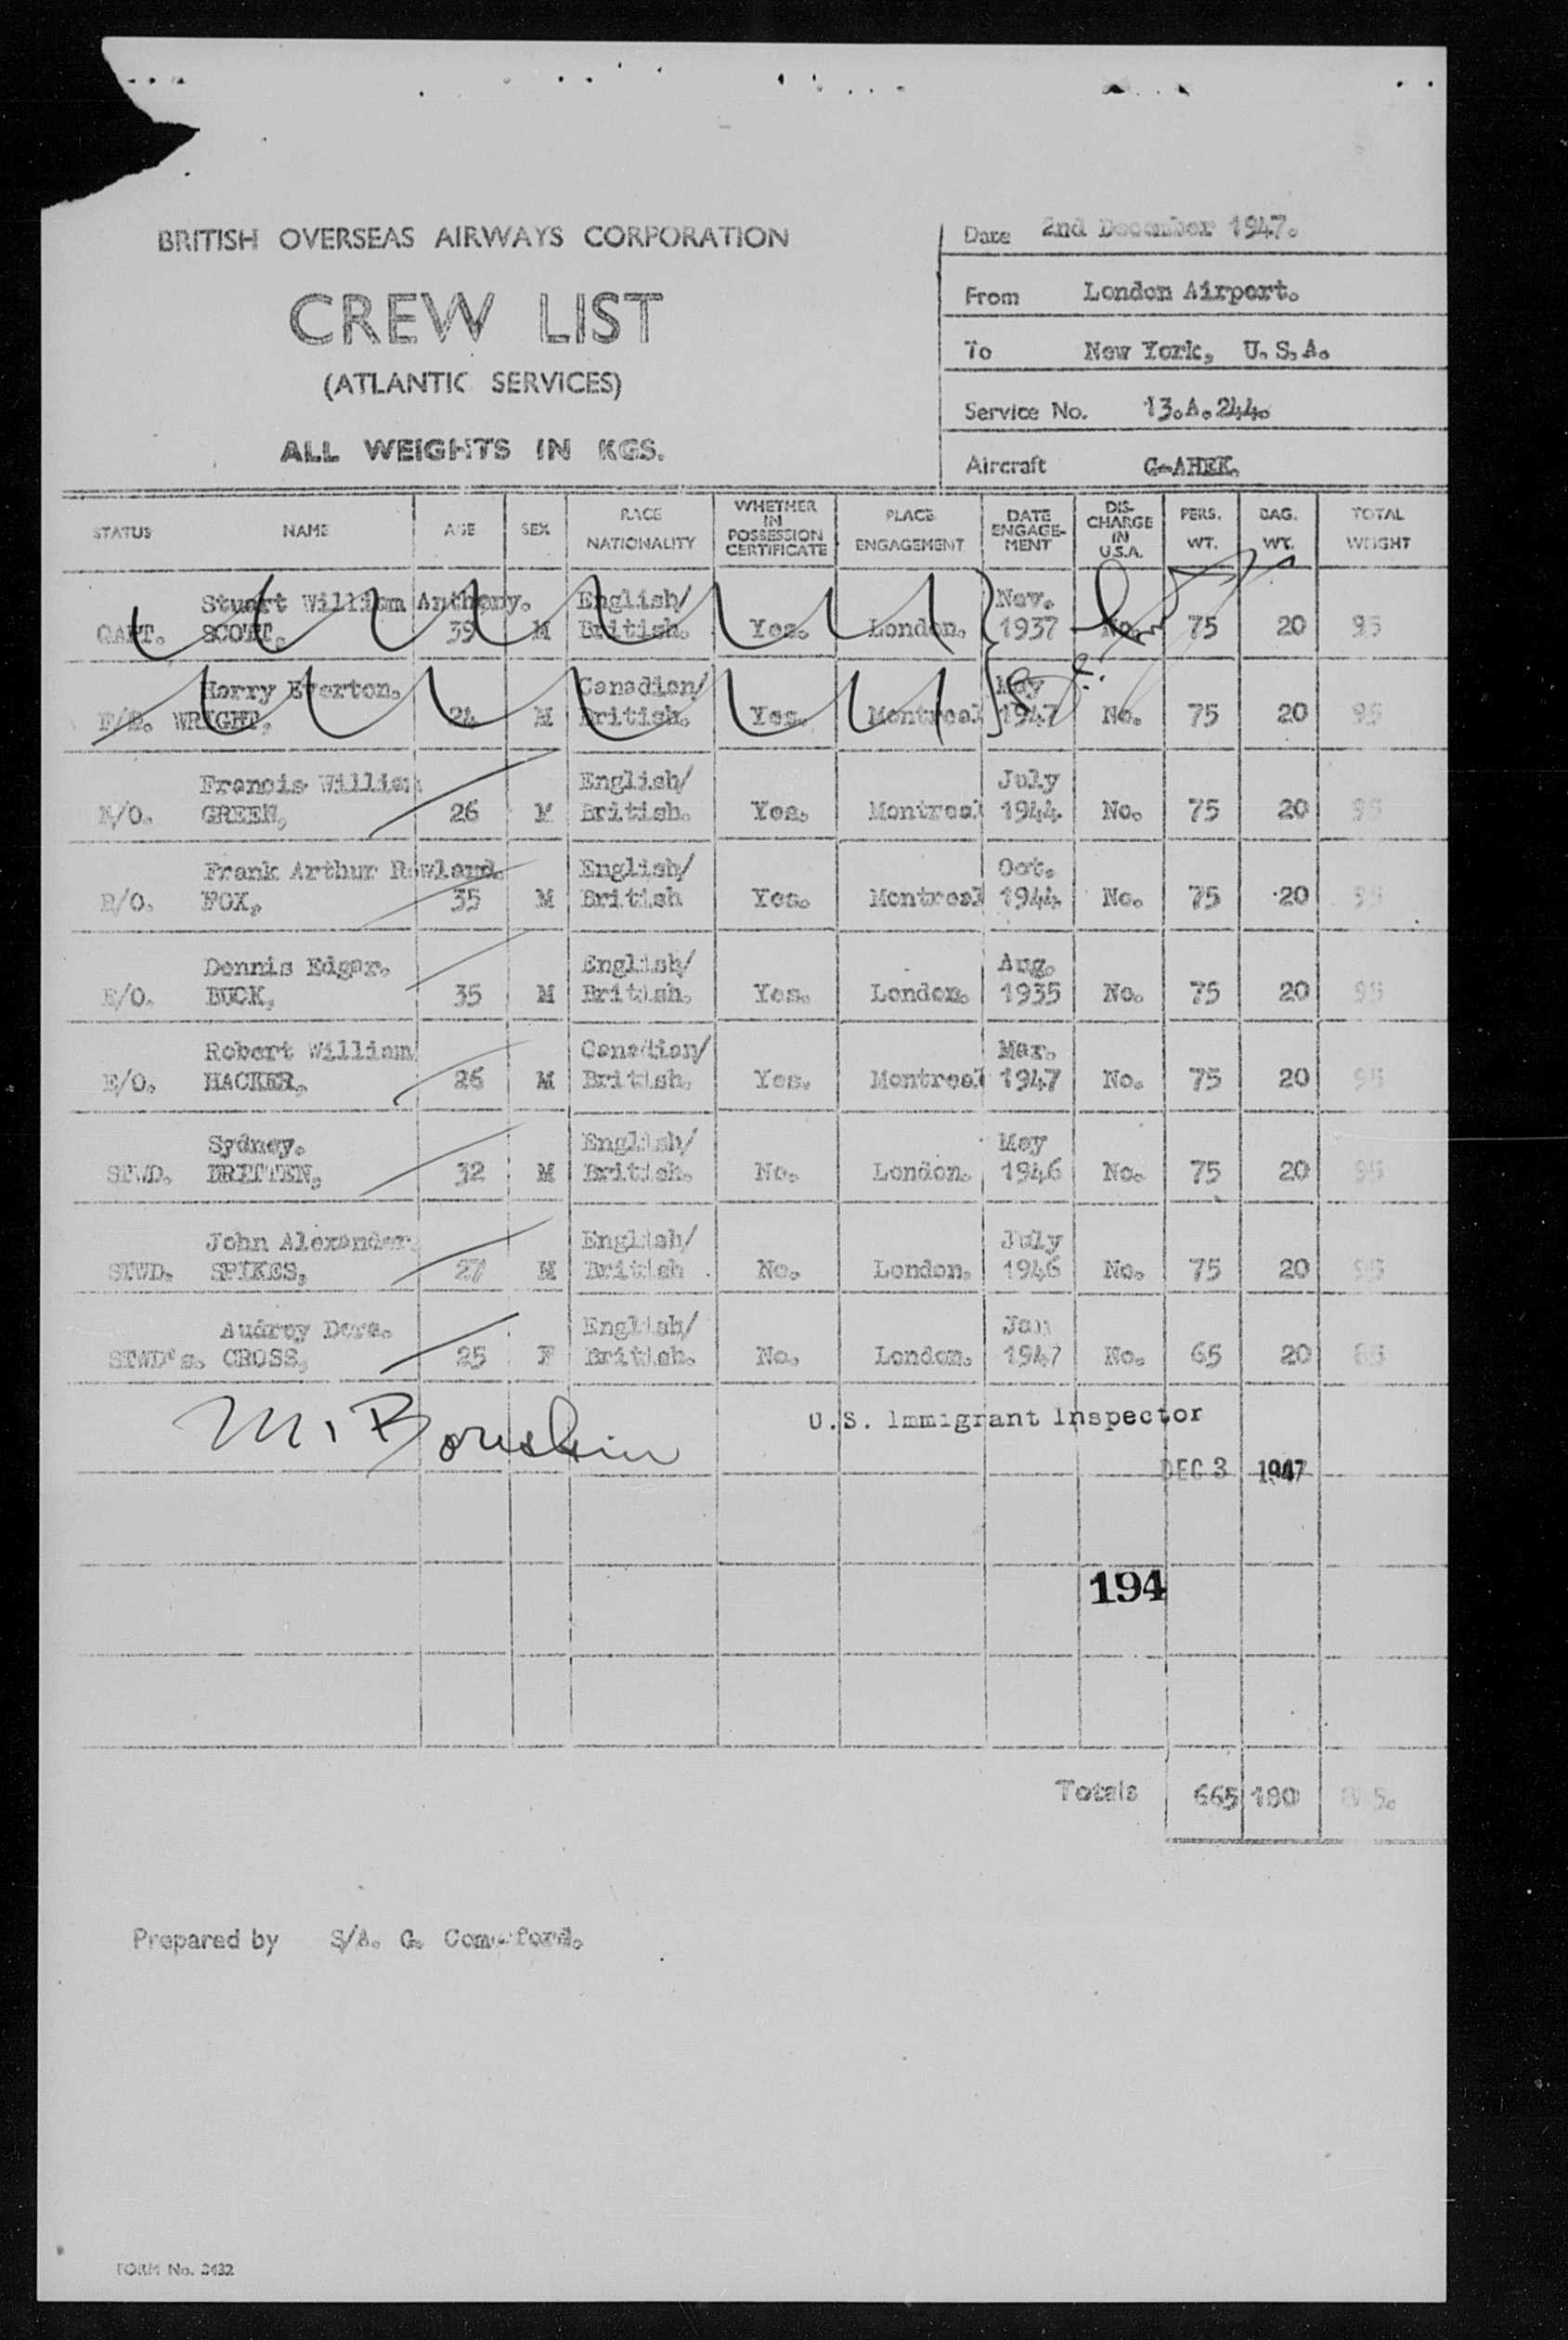 BRITISH OVERSEAS AIRWAYS CORPORATION
CREW LIST
(ATLANTIC SERVICES)
ALL WEIGHTS IN KGS.
Date 2nd December 1947.
From London Airport.
To New York, U.S.A.
Service No. 13.A.244.
Aircraft G-AHEK.
STATUS NAME AGE SEX RACE NATIONALITY WHETHER IN POSSESSION CERTIFICATE PLACE ENGAGEMENT DATE ENGAGE-MENT DIS-CHARGE IN U.S.A. PERS. WT. BAG. WT. TOTAL WEIGHT
Stuart William Anthony. English/ Nov.
CAPT. SCOTT, 39 M British. Yes. London. 1937 No. 75 20 95
Harry Everton. Canadian/ May
WRIGHT, 24 M British. Yes. Montreal 1947 No. 75 20 95
Francis William English/ July
N/O. GREEN, 26 M British. Yes. Montreal 1944 No. 75 20 95
Frank Arthur Rowland. English/ Oct.
R/O. FOX, 35 M British Yes. Montreal 1944 No. 75 20 95
Dennis Edgar. English/ Aug.
E/O. BUCK, 35 M British. Yes. London. 1935 No. 75 20 95
Robert William Canadian/ Mar.
E/O. HACKER, 26 M British. Yes. Montreal 1947 No. 75 20 95
Sydney. English/ May
STWD. BRITTEN, 32 M British. No. London. 1946 No. 75 20 95
John Alexander English/ July
STWD. SPIKES, 27 M British No. London. 1946 No. 75 20 95
Audrey Dora. English/ Jan
STWD's. CROSS, 25 F British. No. London. 1947 No. 65 20 85
M. Bornstein
U.S. Immigrant Inspector
DEC 3 1947
194
Totals 665 180
Prepared by S/A. G.
FORM No. 2432